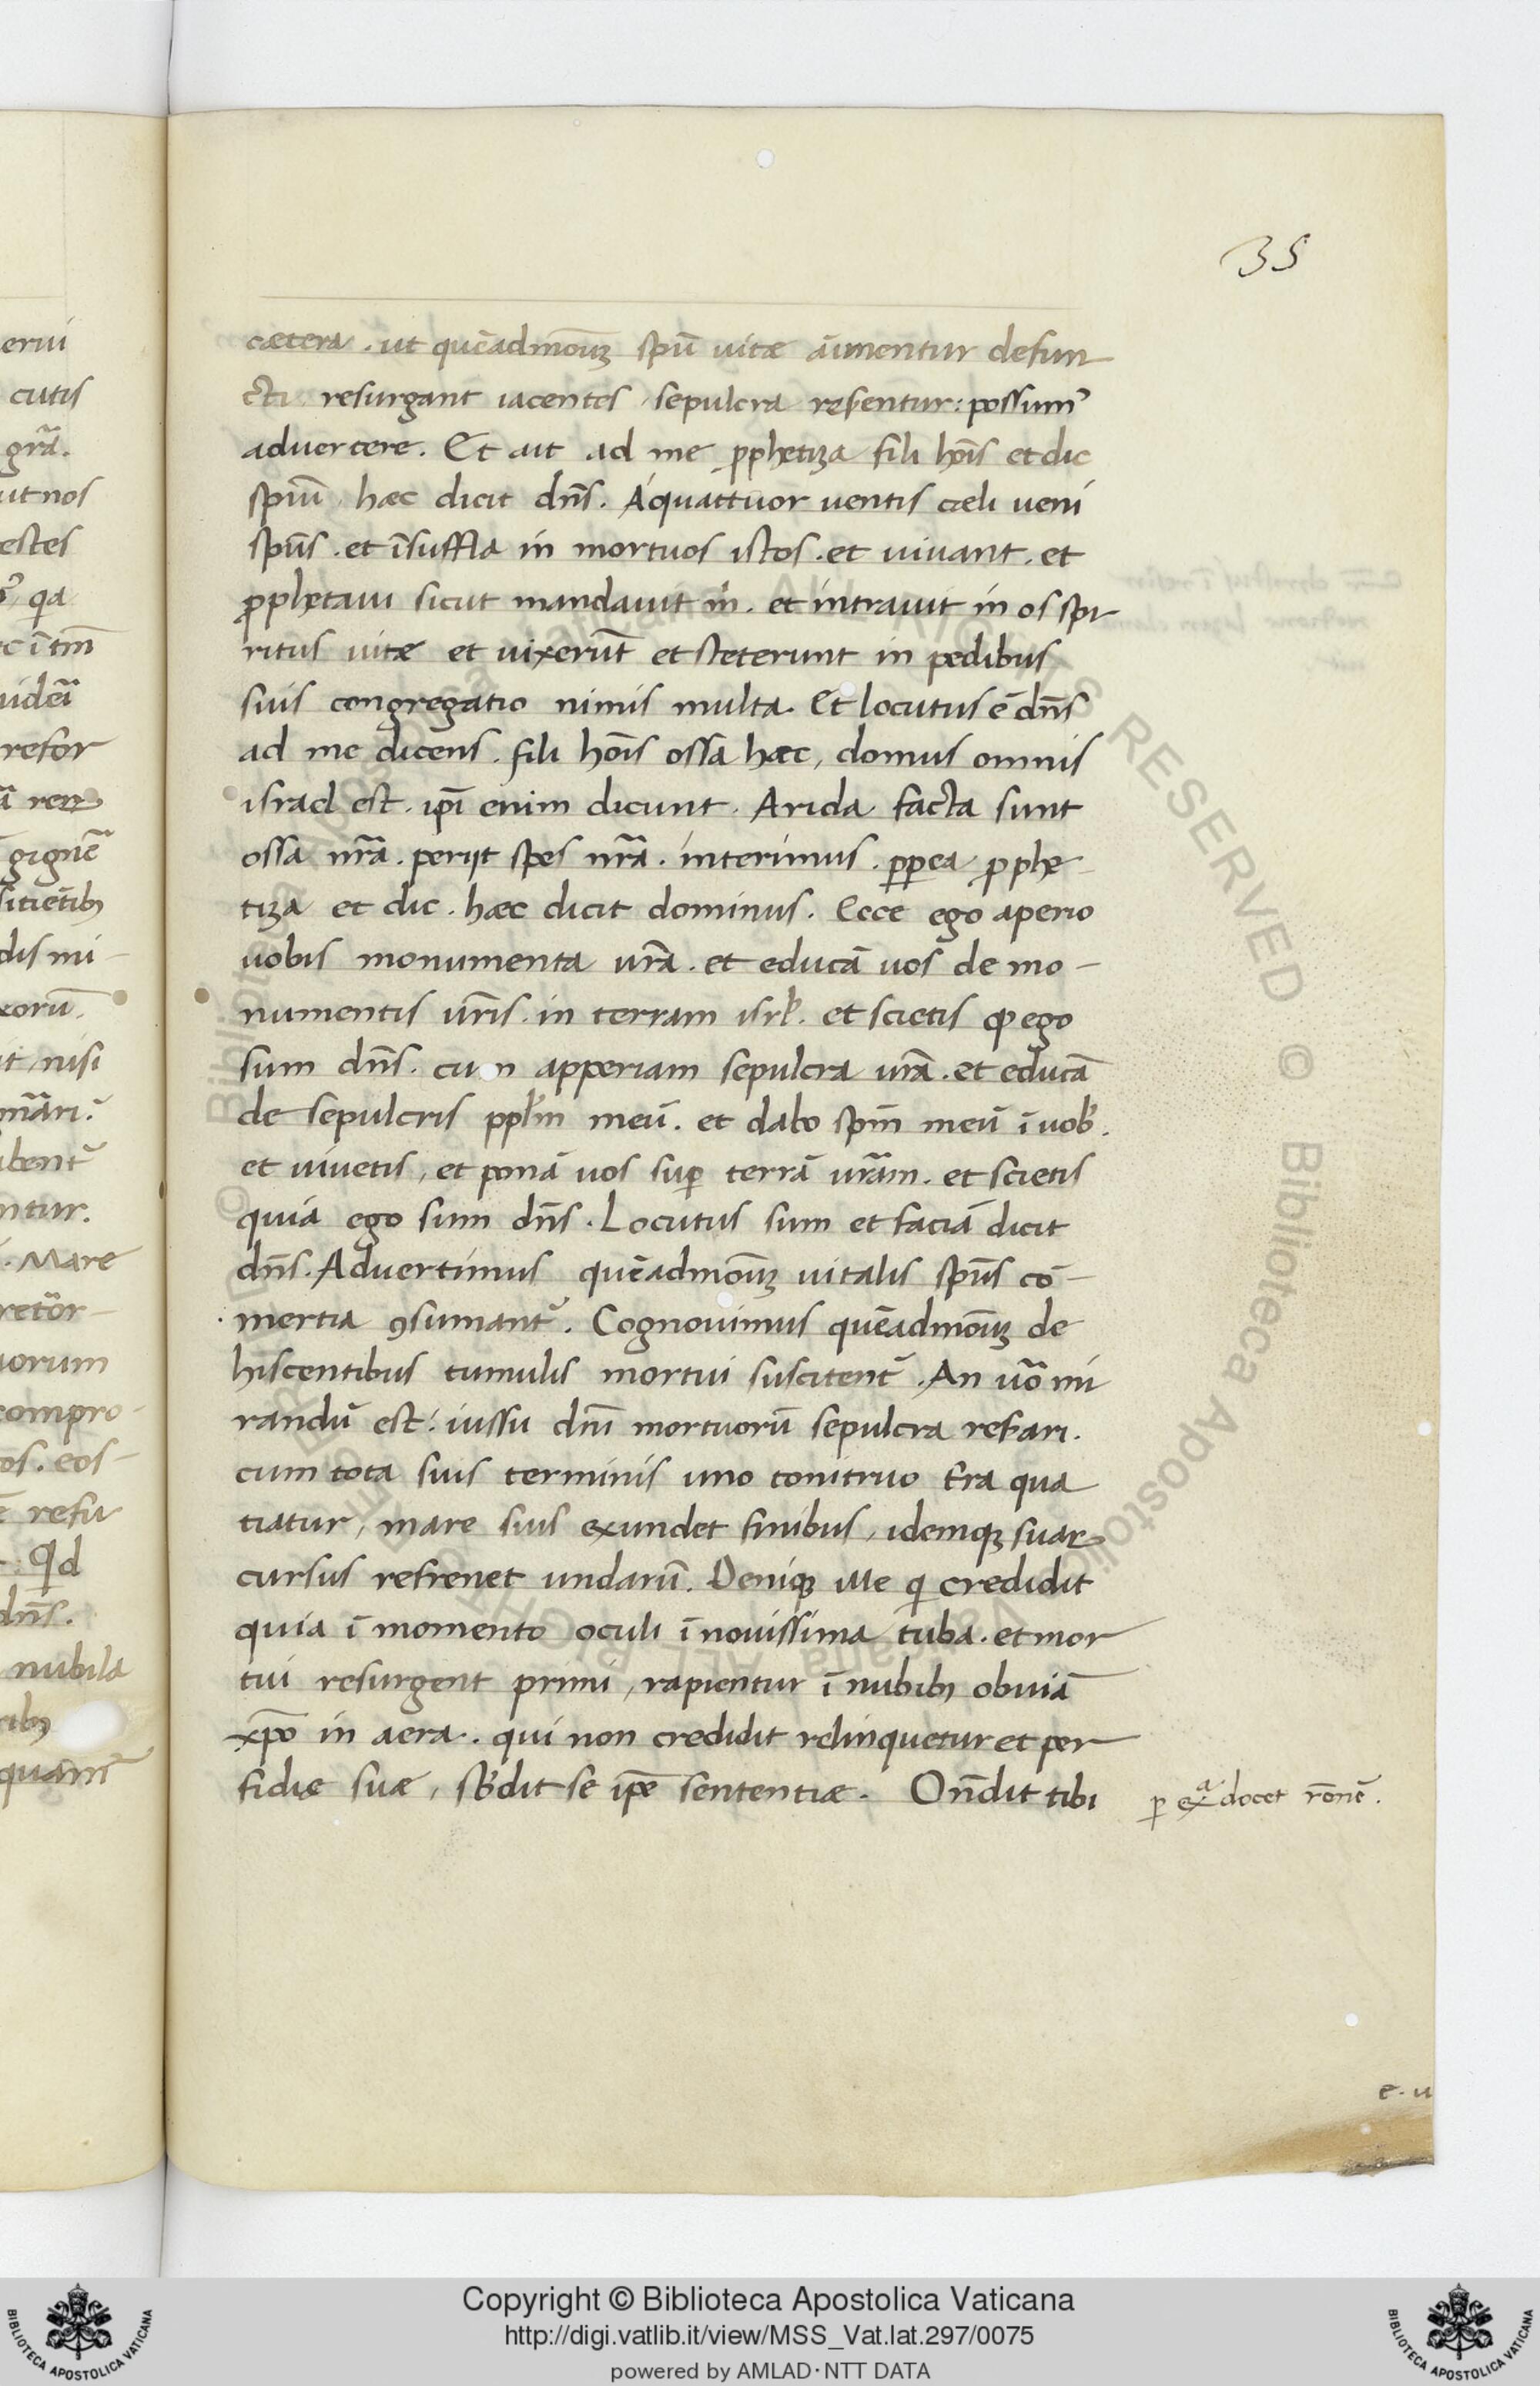 35
cætera . ut quēadmoduꝫ spū uitæ āimentur defun
cti resurgant iacentes , sepulcra reserentur : possum⁹
aduertere . Et ait ad me ꝓphetiza fili hōis et dic
spiūi hæc dicit dn̄s . A quattuor uentis cæli ueni
spūs . et īsuffla in mortuos istos . et uiuant . et
ꝓphetaui sicut mandauit m̄ . et intrauit in os spi
ritus uitæ et uixerūt et steterunt in pedibus
suis congregatio nimis multa . Et locutus ē dn̄s
ad me dicens . fili hōis ossa hæc , domus omnis
israel est . ip̄i enim dicunt . Arida facta sunt
ossa nr̄a . perijt spes nr̄a . interimus . ꝓpea ꝓphe
tiza et dic . hæc dicit dominus . Ecce ego aperio
uobis monumenta ur̄a . et educā uos de mo-
numentis ur̄is . in terram isrl̄ . et scietis ꝙ ego
sum dn̄s . cum apperiam sepulcra ur̄a . et educā
de sepulcris ppl̄m meū . et dabo spm̄ meū ī uob̄ .
et uiuetis , et ponā uos sup̄ terrā ur̄am . et scietis
quia ego sum dn̄s . Locutus sum et faciā dicit
dn̄s . Aduertimus quēadmoduꝫ uitalis spūs cō-
mertia ꝯsumant̄ . Cognouimus quēadmoduꝫ de
hiscentibus tumulis mortui suscitent̄ . An uō mi
randū est : iussu dn̄i mortuorū sepulcra reserari .
cum tota suis terminis uno tonitruo t̄ra qua
tiatur , mare suis exundet finibus , idemqꝫ suaꝝ
cursus refrenet undarū . Deniqꝫ ille q̄ credidit
quia ī momento oculi ī nouissima tuba . et mor
tui resurgent primi , rapientur ī nubibꝫ obuiā
xp̄o in aera . qui non credidit relinquetur et per
fidiæ suæ , sb̄dit se ip̄e sententiæ . On̄dit tibi
ꝑ exª docet rōnē .
e . u